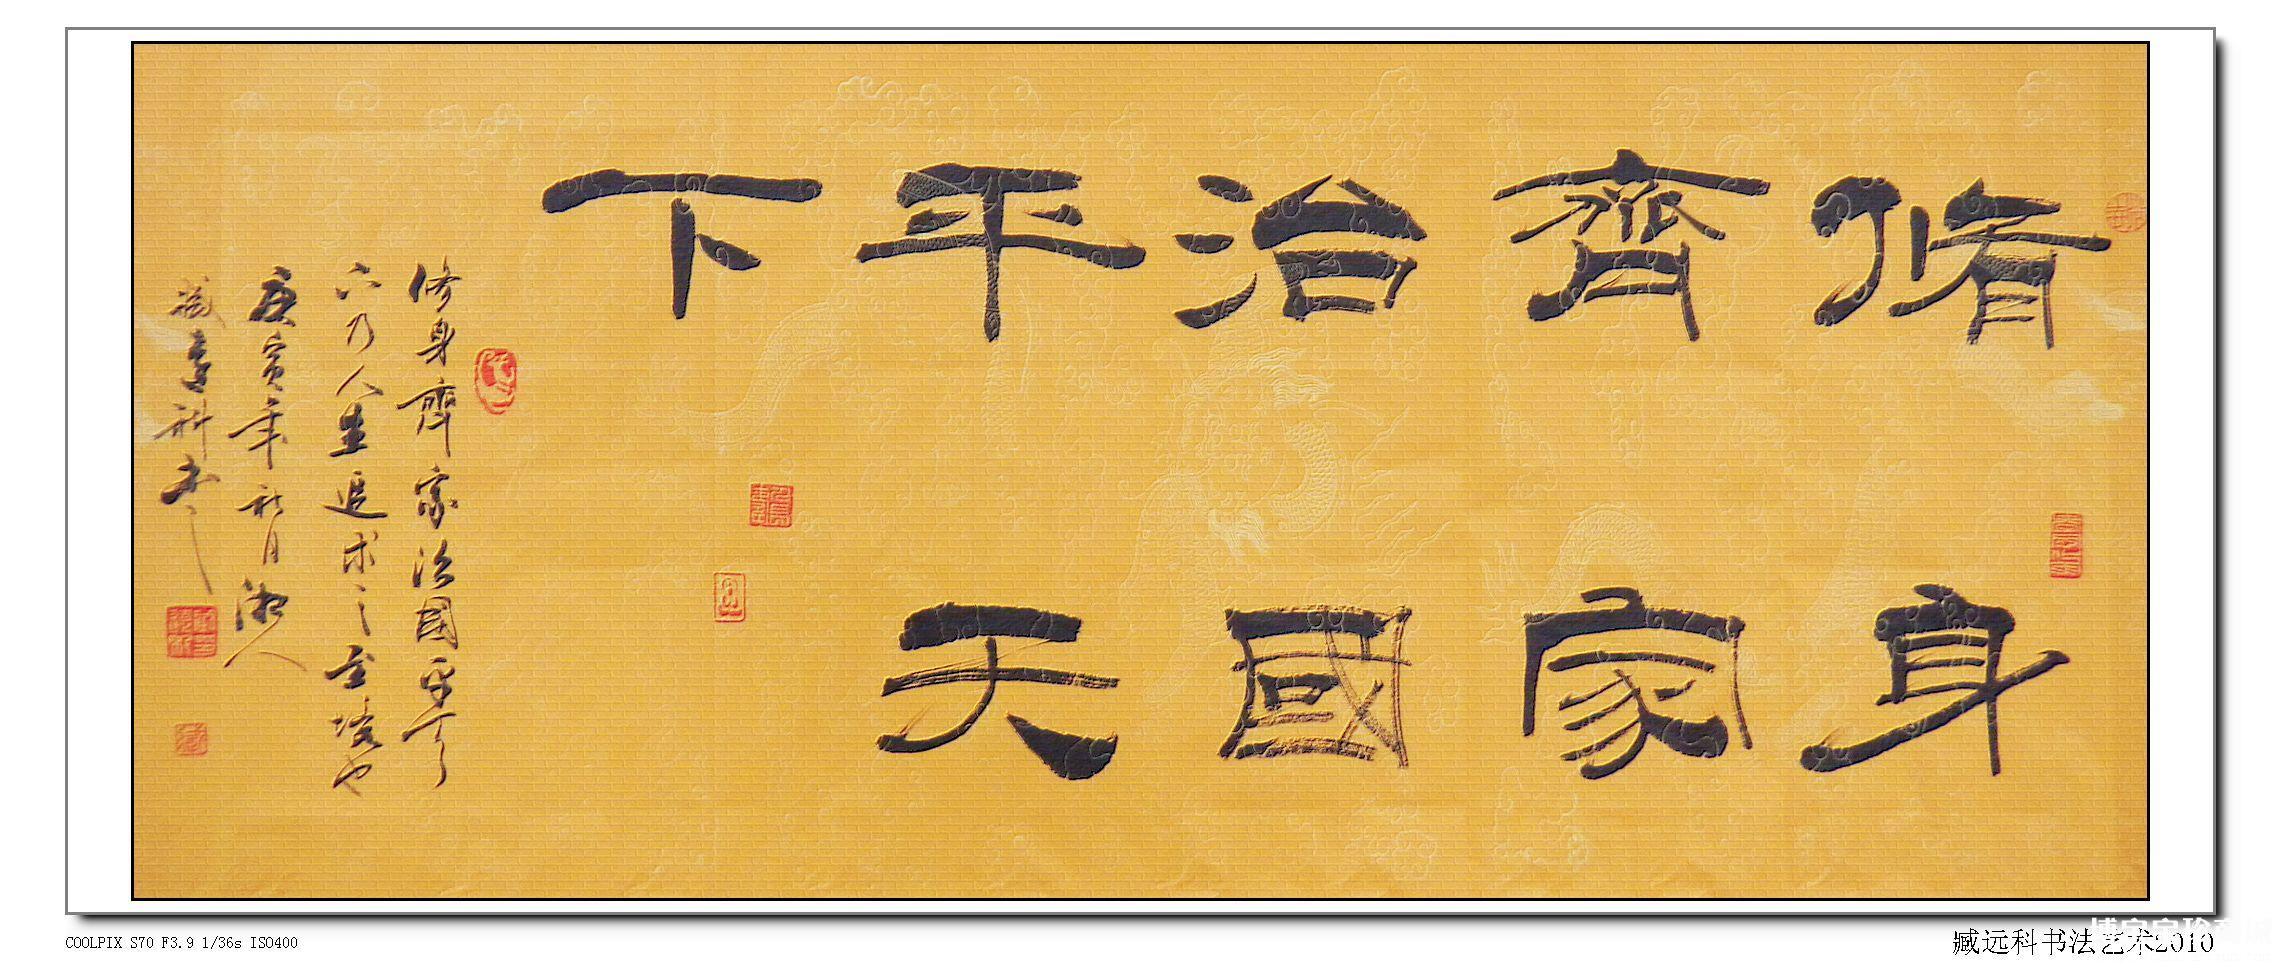 脩身
齊家
治國
平天
下
修身齊家治國平天下
六乃人生追求之至境也
庚寅年秋月湘人
臧遠科書
COOLPIX S70 F3.9 1/36s ISO400
臧远科书法艺术2010